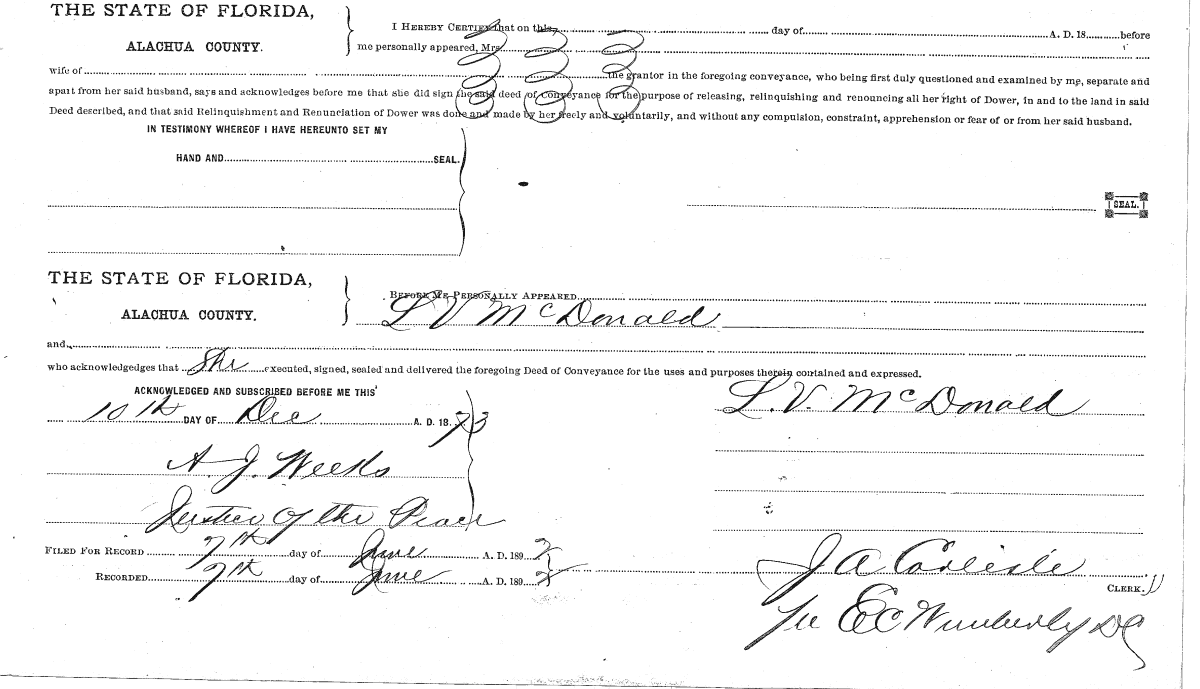 THE STATE OF FLORIDA,
ALACHUA COUNTY.
I HEREBY CERTIFY that on this day of A. D. 18 before
me personally appeared, Mrs
wife of the grantor in the foregoing conveyance, who being first duly questioned and examined by me, separate and
apart from her said husband, says and acknowledges before me that she did sign the said deed of conveyance for the purpose of releasing, relinquishing and renouncing all her right of Dower, in and to the land in said
Deed described, and that said Relinquishment and Renunciation of Dower was done and made by her freely and voluntarily, and without any compulsion, constraint, apprehension or fear of or from her said husband.
IN TESTIMONY WHEREOF I HAVE HEREUNTO SET MY
HAND AND SEAL.
SEAL.
THE STATE OF FLORIDA,
ALACHUA COUNTY.
BEFORE ME PERSONALLY APPEARED
L V McDonald
and
who acknowledges that She executed, signed, sealed and delivered the foregoing Deed of Conveyance for the uses and purposes therein contained and expressed.
ACKNOWLEDGED AND SUBSCRIBED BEFORE ME THIS
10th DAY OF Dec A. D. 18
L. V. McDonald
A. J. Weeks
Justice of the Peace
FILED FOR RECORD 7th day of June A. D. 1892
RECORDED 7th day of June A. D. 1892
J A Carlisle
CLERK.
Per E C Wimberly DC